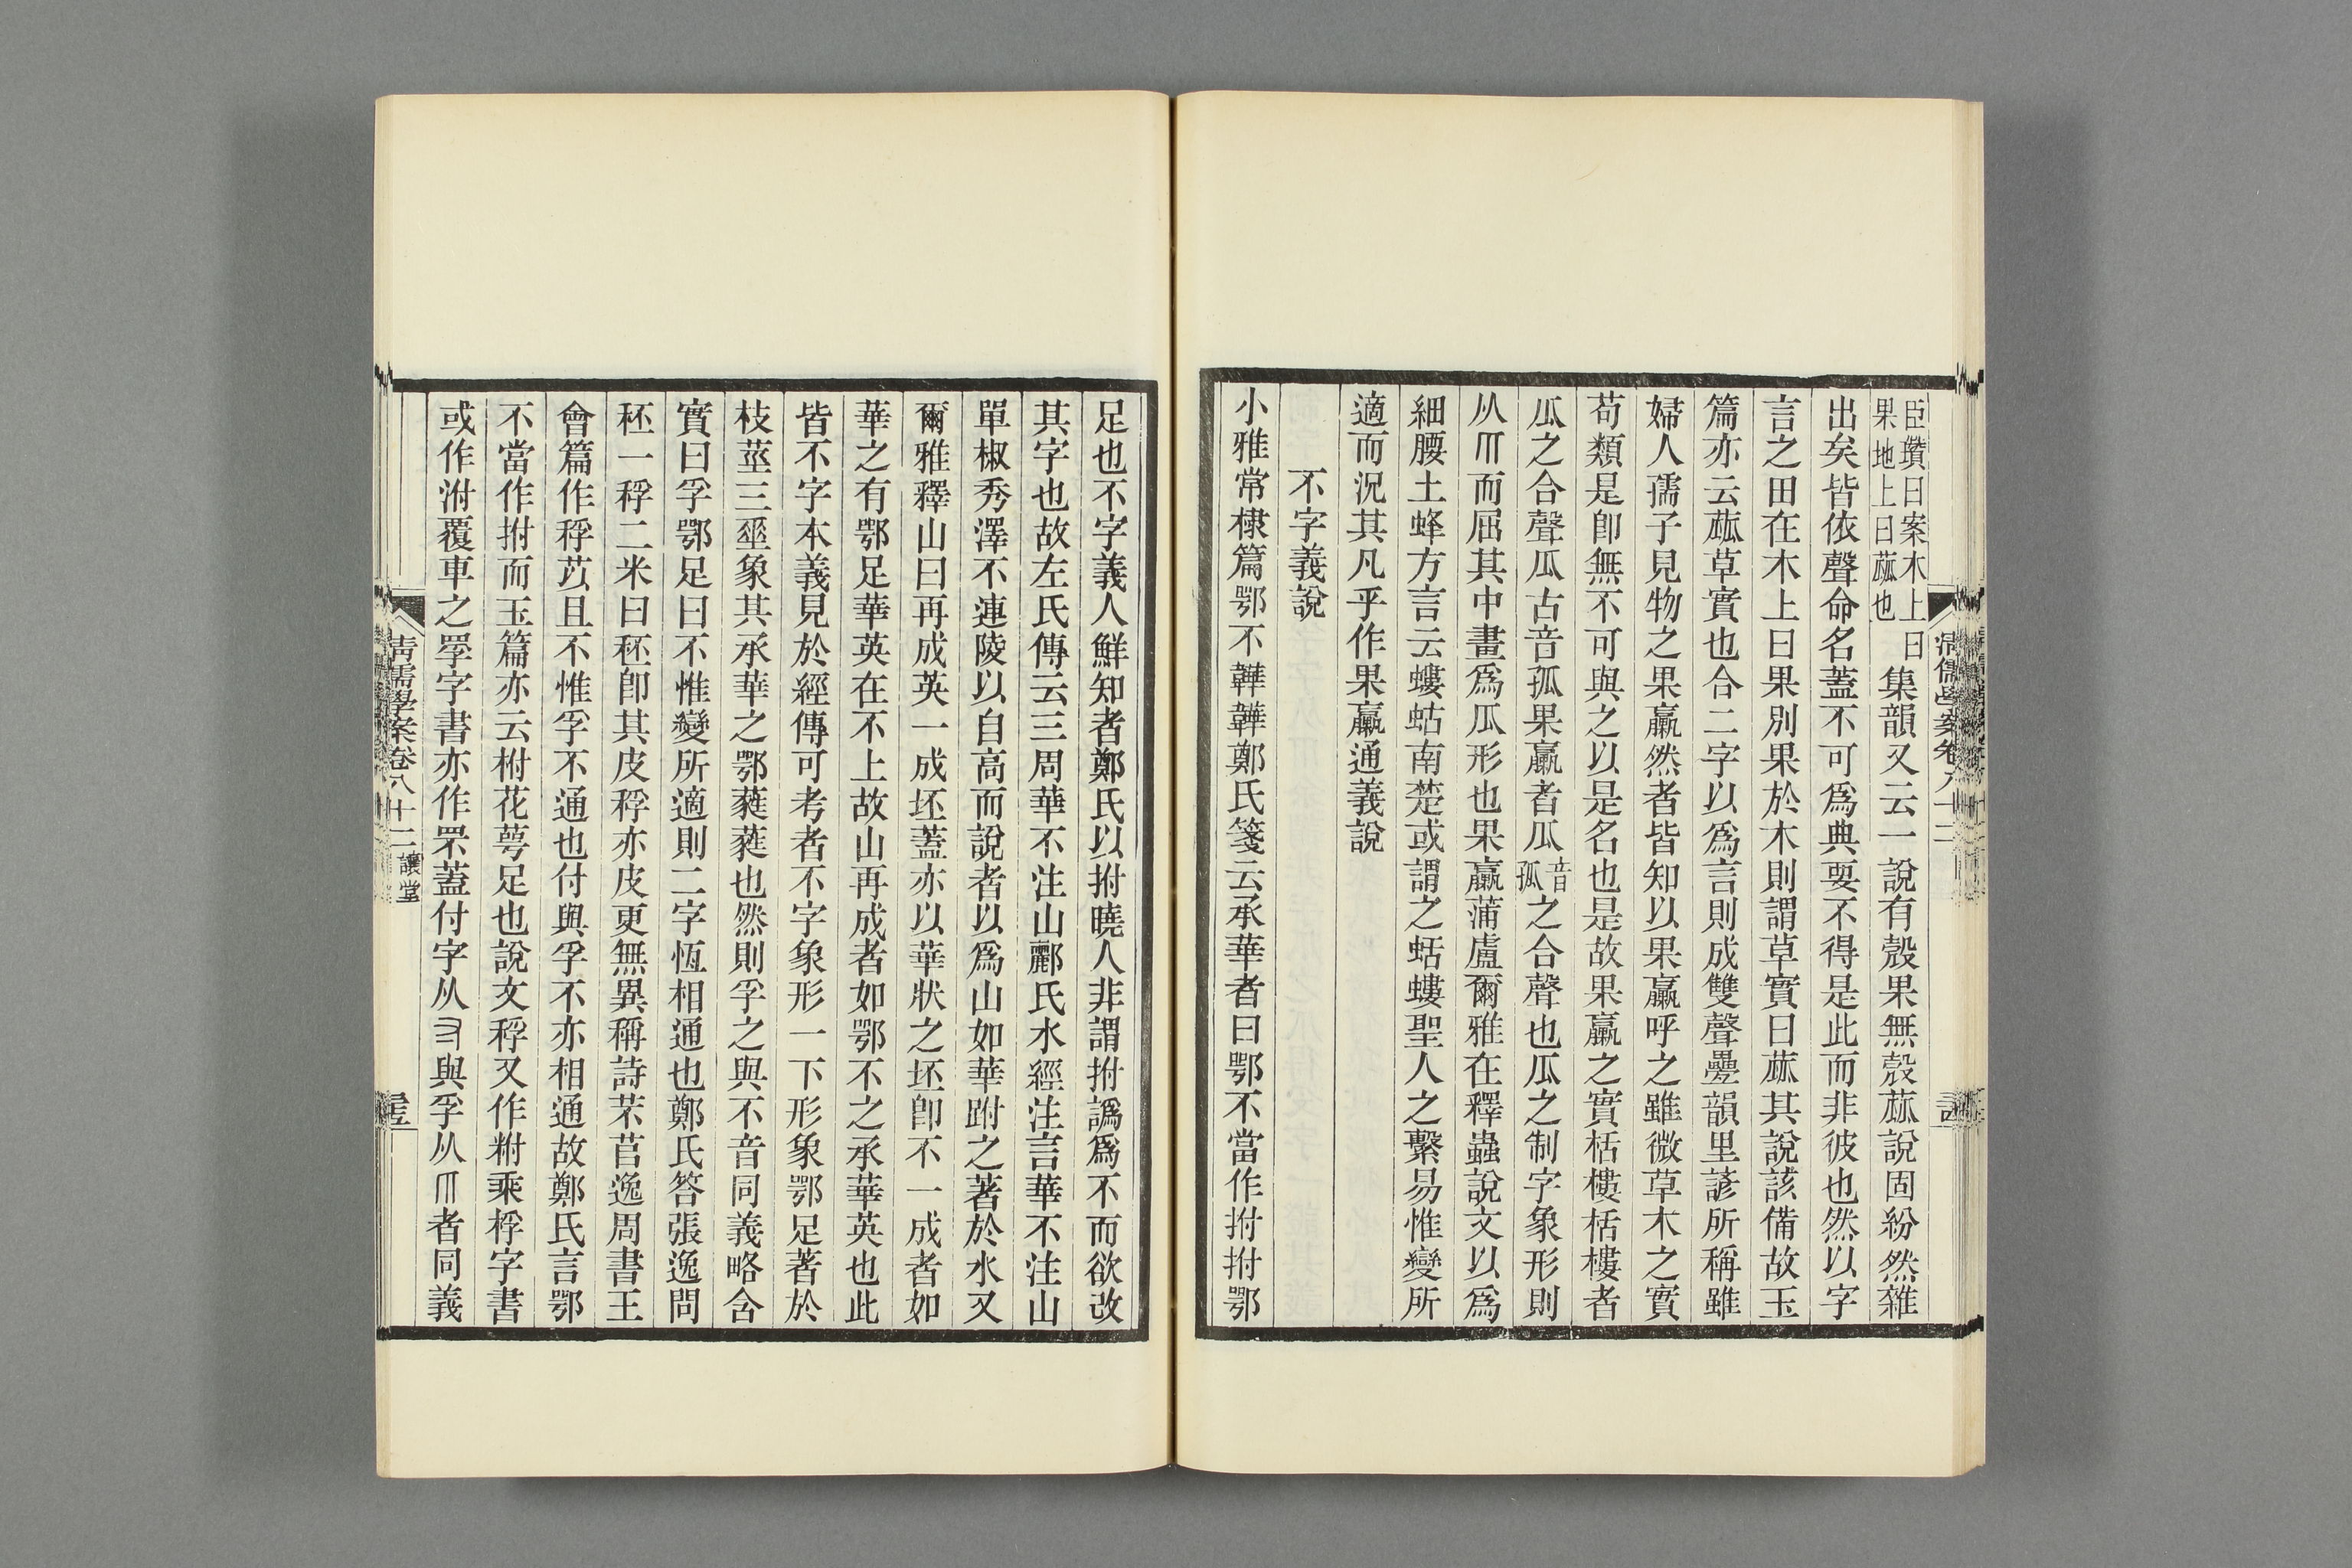 臣瓚曰案木上曰
果地上曰蓏也
集韻又云一說有殼果無殼蓏說固紛然雜
出矣皆依聲命名蓋不可爲典要不得是此而非彼也然以字
言之田在木上曰果別果於木則謂草實曰蓏其說該備故玉
篇亦云蓏草實也合二字以爲言則成雙聲疊韻里諺所稱雖
婦人孺子見物之果臝然者皆知以果臝呼之雖微草木之實
苟類是卽無不可與之以是名也是故果臝之實栝樓栝樓者
瓜之合聲瓜古音孤果臝者瓜音孤之合聲也瓜之制字象形則
从爪而屈其中畫爲瓜形也果臝蒲盧爾雅在釋蟲說文以爲
細腰土蜂方言云螻蛄南楚或謂之蛞螻聖人之繫易惟變所
適而況其凡乎作果臝通義說
不字義說
小雅常棣篇鄂不韡韡鄭氏箋云承華者曰鄂不當作拊拊鄂
足也不字義人鮮知者鄭氏以拊曉人非謂拊譌爲不而欲改
其字也故左氏傳云三周華不注山酈氏水經注言華不注山
單椒秀澤不連陵以自高而說者以爲山如華跗之著於水又
爾雅釋山曰再成英一成坯蓋亦以華狀之坯卽不一成者如
華之有鄂足華英在不上故山再成者如鄂不之承華英也此
皆不字本義見於經傳可考者不字象形一下形象鄂足著於
枝莖三𠂹象其承華之鄂蕤蕤也然則孚之與不音同義略含
實曰孚鄂足曰不惟變所適則二字恆相通也鄭氏答張逸問
秠一稃二米曰秠卽其皮稃亦皮更無異稱詩芣苢逸周書王
會篇作稃苡且不惟孚不通也付與孚不亦相通故鄭氏言鄂
不當作拊而玉篇亦云柎花萼足也說文稃又作䊇乘桴字書
或作泭覆車之罦字書亦作罘蓋付字从又與孚从爪者同義
清儒學案卷八十二
讓堂